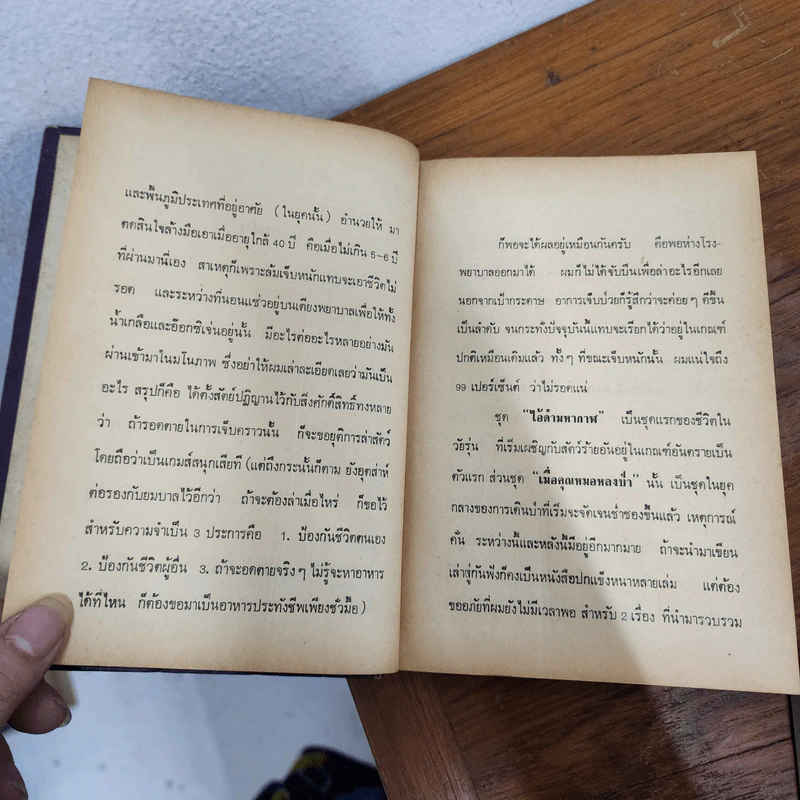 และพื้นภูมิประเทศที่อยู่อาศัย (ในยุคนั้น) อำนวยให้ มา
ตัดสินใจล้างมือเอาเมื่ออายุใกล้ 40 ปี คือเมื่อไม่เกิน 5-6 ปี
ที่ผ่านมานี่เอง สาเหตุก็เพราะล้มเจ็บหนักแทบจะเอาชีวิตไม่
รอด และระหว่างที่นอนแซ่วอยู่บนเตียงพยาบาลเพื่อให้ทั้ง
น้ำเกลือและอ๊อกซิเจ่นอยู่นั้น มีอะไรต่ออะไรหลายอย่างมัน
ผ่านเข้ามาในมโนภาพ ซึ่งอย่าให้ผมเล่าละเอียดเลยว่ามันเป็น
อะไร สรุปก็คือ ได้ตั้งสัตย์ปฏิญานไว้กับสิ่งศักดิ์สิทธิ์ทั้งหลาย
ว่า ถ้ารอดตายในการเจ็บคราวนั้น ก็จะขอยุติการล่าสัตว์
โดยถือว่าเป็นเกมส์สนุกเสียที (แต่ถึงกระนั้นก็ตาม ยังอุตส่าห์
ต่อรองกับยมบาลไว้อีกว่า ถ้าจะต้องล่าเมื่อไหร่ ก็ขอไว้
สำหรับความจำเป็น 3 ประการคือ 1. ป้องกันชีวิตตนเอง
2. ป้องกันชีวิตผู้อื่น 3. ถ้าจะอดตายจริงๆ ไม่รู้จะหาอาหาร
ได้ที่ไหน ก็ต้องขอมาเป็นอาหารประทังชีพเพียงชั่วมื้อ)
ก็พอจะได้ผลอยู่เหมือนกันครับ คือพอห่างโรง-
พยาบาลออกมาได้ ผมก็ไม่ได้จับปืนเพื่อล่าอะไรอีกเลย
นอกจากเป้ากระดาษ อาการเจ็บป่วยก็รู้สึกว่าจะค่อยๆ ดีขึ้น
เป็นลำดับ จนกระทั่งปัจจุบันนี้แทบจะเรียกได้ว่าอยู่ในเกณฑ์
ปกติเหมือนเดิมแล้ว ทั้งๆ ที่ขณะเจ็บหนักนั้น ผมแน่ใจถึง
99 เปอร์เซ็นต์ ว่าไม่รอดแน่
ชุด "ไอ้ดำมหากาฬ" เป็นชุดแรกของชีวิตใน
วัยรุ่น ที่เริ่มเผชิญกับสัตว์ร้ายอันอยู่ในเกณฑ์อันตรายเป็น
ตัวแรก ส่วนชุด "เมื่อคุณหมอหลงป่า" นั้น เป็นชุดในยุค
กลางของการเดินป่าที่เริ่มจะจัดเจนช่ำชองขึ้นแล้ว เหตุการณ์
คั่น ระหว่างนี้และหลังนี้มีอยู่อีกมากมาย ถ้าจะนำมาเขียน
เล่าสู่กันฟังก็คงเป็นหนังสือปกแข็งหนาหลายเล่ม แต่ต้อง
ขออภัยที่ผมยังไม่มีเวลาพอ สำหรับ 2 เรื่อง ที่นำมารวบรวม